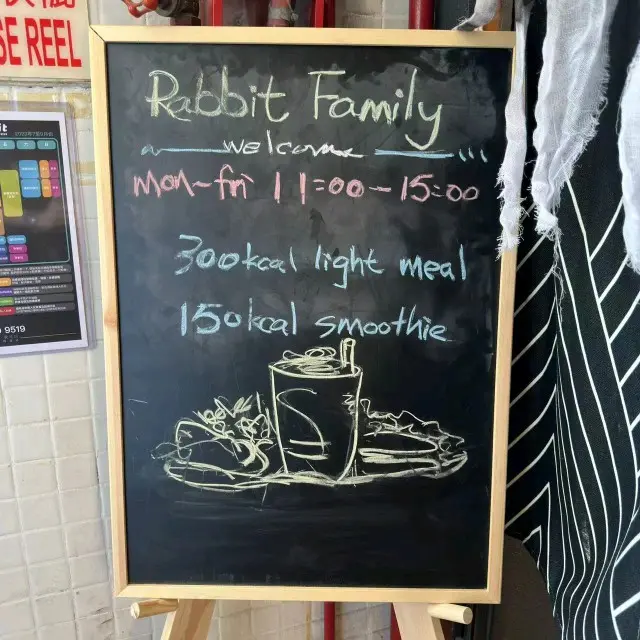 SE REEL
Rabbit Family
welcome
mon-fri 11:00-15:00
300kcal light meal
150kcal smoothie
9519